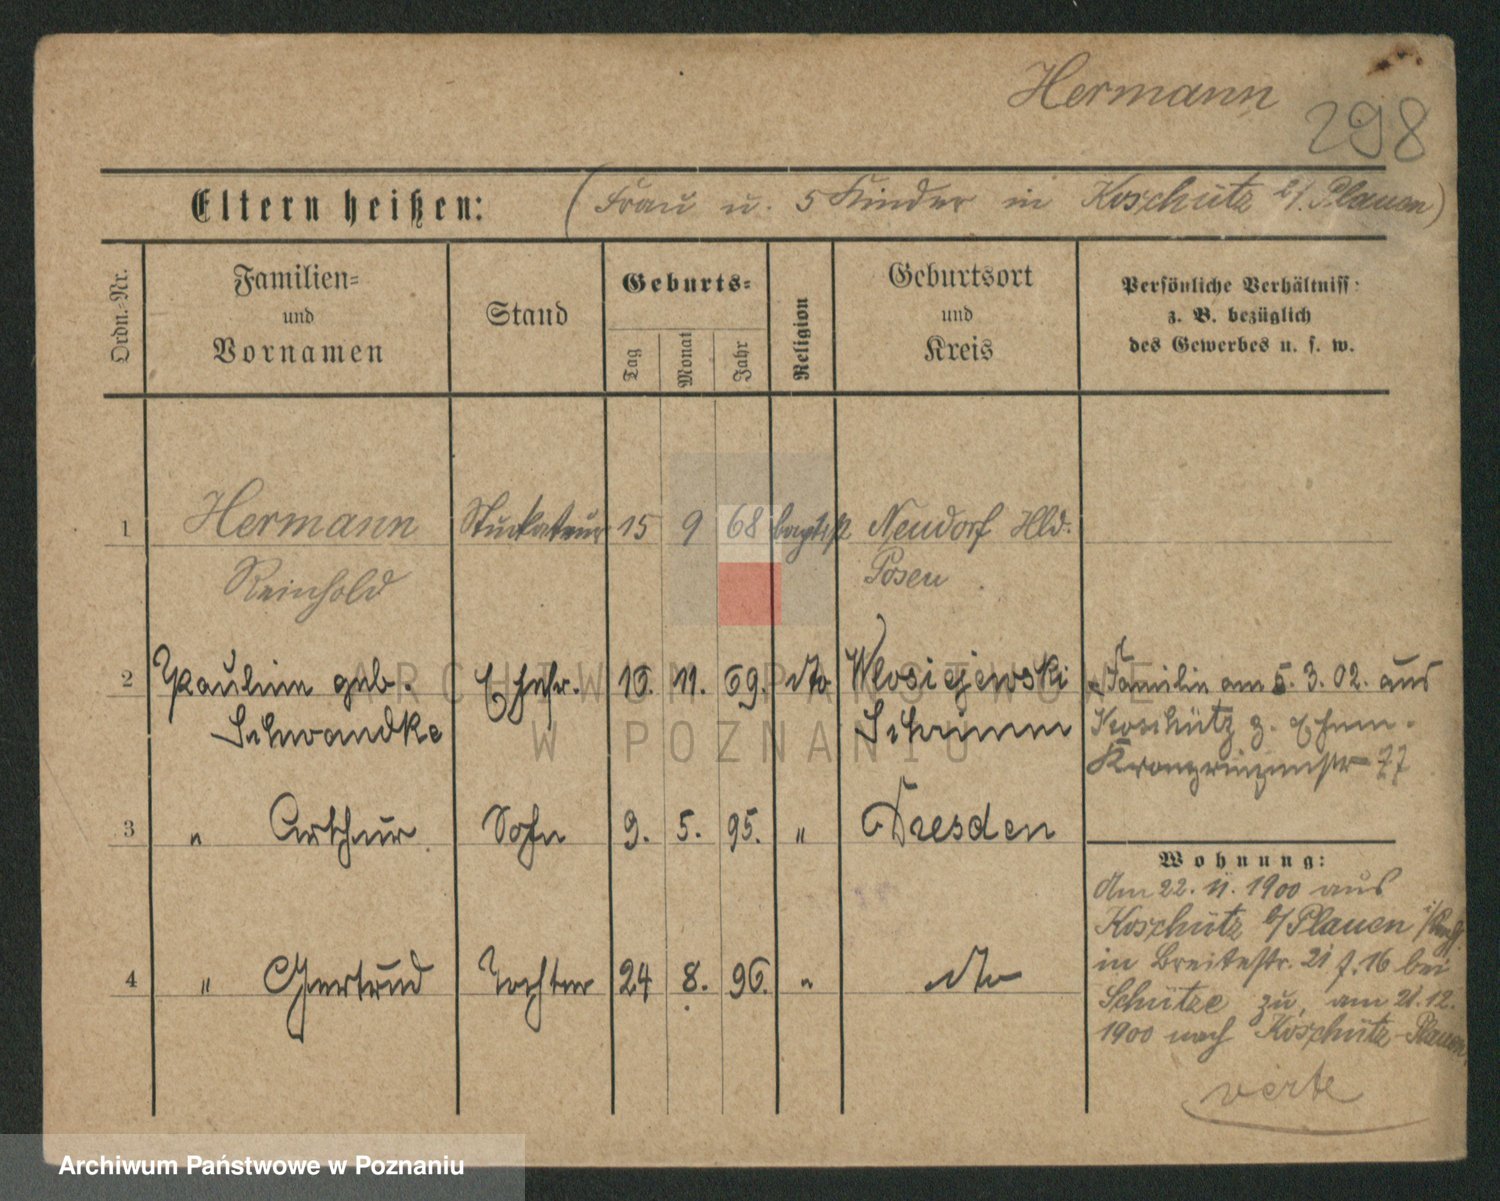 Hermann
298
Eltern heißen: (Frau u. 5 Kinder in Koschütz b/. Plauen)
Ordn.-Nr.
Familien-
und
Vornamen
Stand
Geburts-
Tag
Monat
Jahr
Religion
Geburtsort
und
Kreis
Persönliche Verhältniss:
z. B. bezüglich
des Gewerbes u. s. w.
1 Hermann Stuckateur 15 9 68 baptist Neudorf Hld.
Reinhold Posen
2 Pauline geb. Ehefr. 16. 11. 69. dto Wlosciejewski Familie am 5. 3. 02. aus
Schwandke Schrimm Koschütz z. Ehem.
Kronprinzenstr 77
3 " Arthur Sohn 9. 5. 95. " Dresden
Wohnung:
Am 22. 11. 1900 aus
Koschütz b/ Plauen
in Breitestr. 21 f. 16 bei
4 " Gertrud Tochter 24 8. 96. " dto
Schütze zu, am 21.12.
1900 nach Koschütz-Plauen,
verte
ARCHIWUM PAŃSTWOWE
W POZNANIU
Archiwum Państwowe w Poznaniu